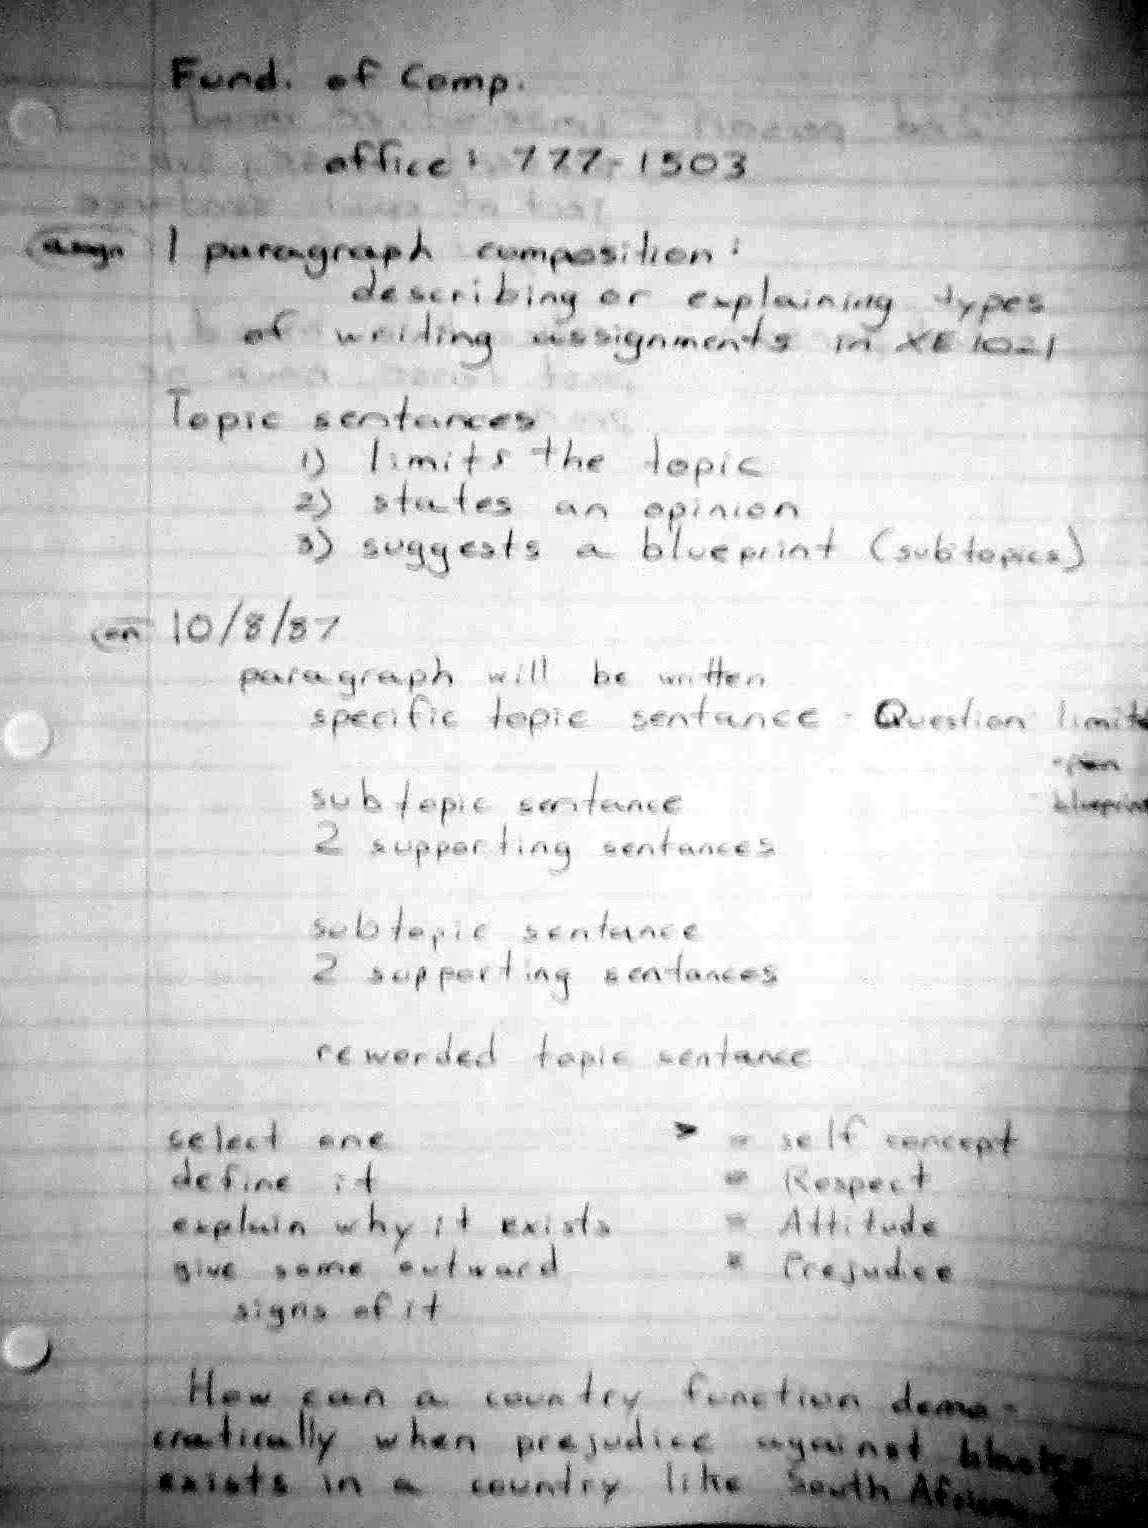 Fund. of Comp.
office: 777-1503
assign 1 paragraph composition:
describing or explaining types
of writing assignments in XE 1021
Topic sentances
1) limits the topic
2) states an opinion
3) suggests a blueprint (subtopics)
on 10/8/87
paragraph will be written
specific topic sentance - Question limits
blueprint
subtopic sentance
2 supporting sentances
subtopic sentance
2 supporting sentances
reworded topic sentance
select one
define it
explain why it exists
give some outward
signs of it
self concept
Respect
Attitude
Prejudice
How can a country function demo-
cratically when prejudice against blacks
exists in a country like South Africa ?